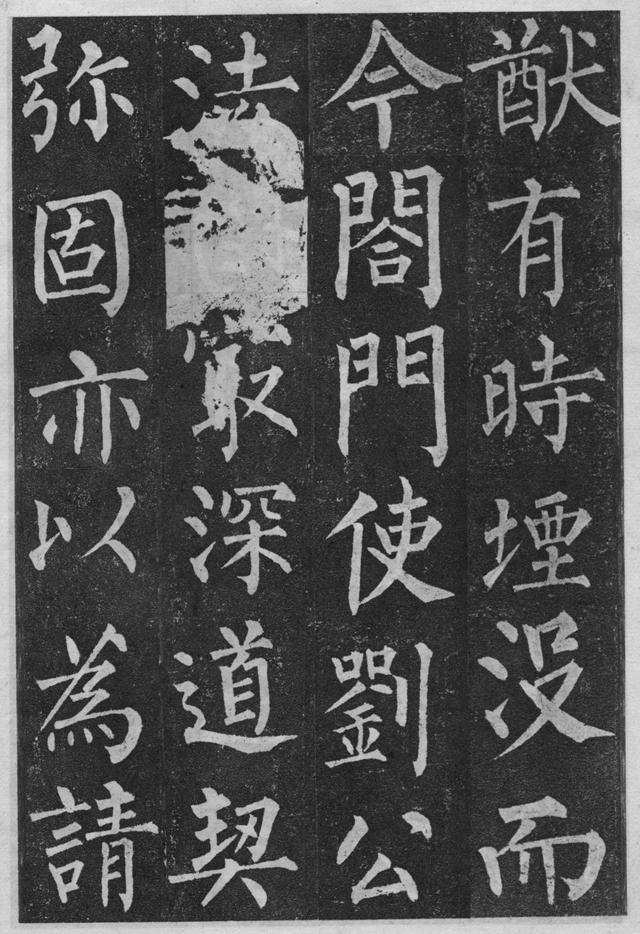 猷有時堙没而
今閤門使劉公
法最深道契
弥固亦以為請